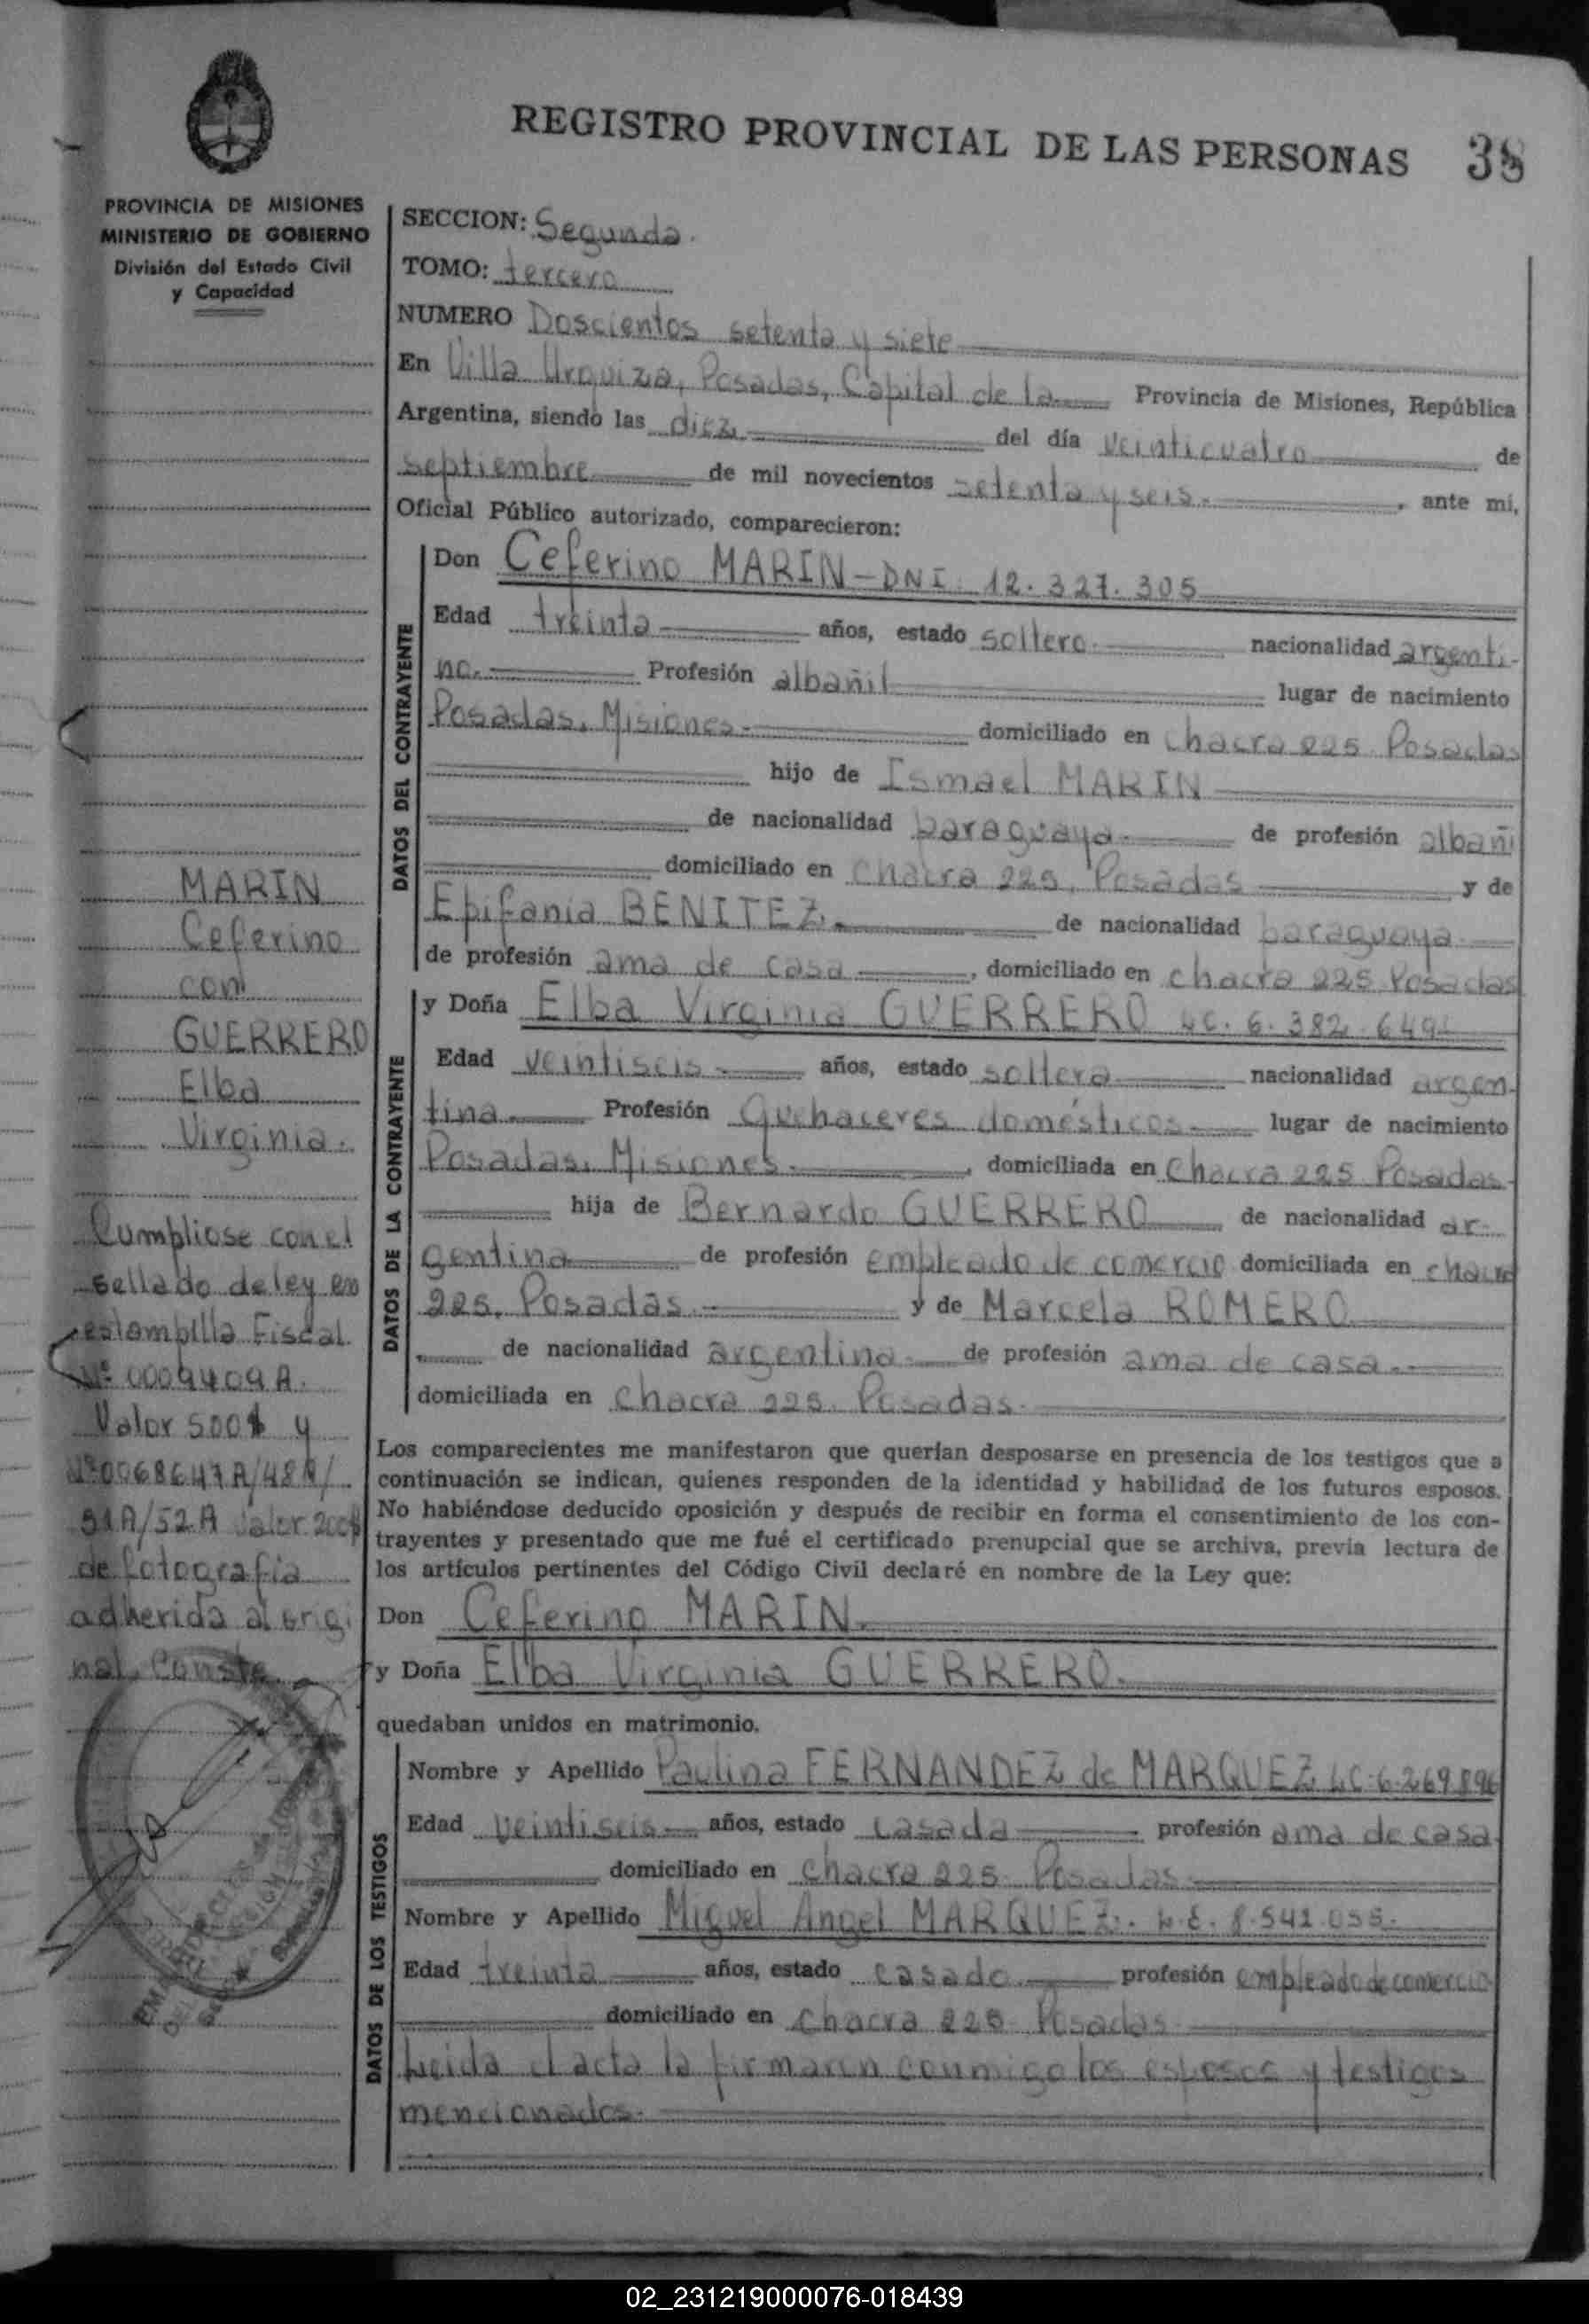 REGISTRO PROVINCIAL DE LAS PERSONAS 38
PROVINCIA DE MISIONES
MINISTERIO DE GOBIERNO
División del Estado Civil
y Capacidad
SECCION: Segunda.
TOMO: tercero
NUMERO Doscientos setenta y siete
En Villa Urquiza, Posadas, Capital de la Provincia de Misiones, República
Argentina, siendo las diez. del día veinticuatro de
septiembre de mil novecientos setenta y seis. , ante mi,
Oficial Público autorizado, comparecieron:
DATOS DEL CONTRAYENTE
Don Ceferino MARIN - DNI. 12.327.305
Edad treinta años, estado soltero. nacionalidad argenti-
no. Profesión albañil lugar de nacimiento
Posadas, Misiones. domiciliado en chacra 225 Posadas
hijo de Ismael MARIN
de nacionalidad paraguaya de profesión albañi
domiciliado en Chacra 225, Posadas y de
Epifania BENITEZ. de nacionalidad paraguaya
de profesión ama de casa , domiciliado en chacra 225 Posadas
DATOS DE LA CONTRAYENTE
y Doña Elba Virginia GUERRERO LC. 6.382.649.
Edad veintiseis años, estado soltera nacionalidad argen-
tina Profesión Quehaceres domésticos lugar de nacimiento
Posadas, Misiones. , domiciliada en Chacra 225 Posadas.
hija de Bernardo GUERRERO de nacionalidad ar-
gentina de profesión empleado de comercio domiciliada en chacra
225, Posadas y de Marcela ROMERO
de nacionalidad argentina de profesión ama de casa.
domiciliada en Chacra 225. Posadas.
Los comparecientes me manifestaron que querían desposarse en presencia de los testigos que a
continuación se indican, quienes responden de la identidad y habilidad de los futuros esposos.
No habiéndose deducido oposición y después de recibir en forma el consentimiento de los con-
trayentes y presentado que me fué el certificado prenupcial que se archiva, previa lectura de
los artículos pertinentes del Código Civil declaré en nombre de la Ley que:
Don Ceferino MARIN.
y Doña Elba Virginia GUERRERO.
quedaban unidos en matrimonio.
DATOS DE LOS TESTIGOS
Nombre y Apellido Paulina FERNANDEZ de MARQUEZ LC. 6.269.896
Edad veintiseis años, estado casada profesión ama de casa.
domiciliado en Chacra 225 Posadas
Nombre y Apellido Miguel Angel MARQUEZ. L.E. 8.541.055.
Edad treinta años, estado casado profesión empleado de comercio
domiciliado en Chacra 225 Posadas
Leida el acta la firmaron conmigo los esposos y testigos
mencionados.
MARIN
Ceferino
con
GUERRERO
Elba
Virginia.
Cumpliose con el
sellado de ley en
estampilla Fiscal
Nº 0009409 A.
Valor 500$ y
Nº 0068647A/48A/
51A/52A Valor 200$
de fotografia
adherida al origi
nal. Conste
02_231219000076-018439